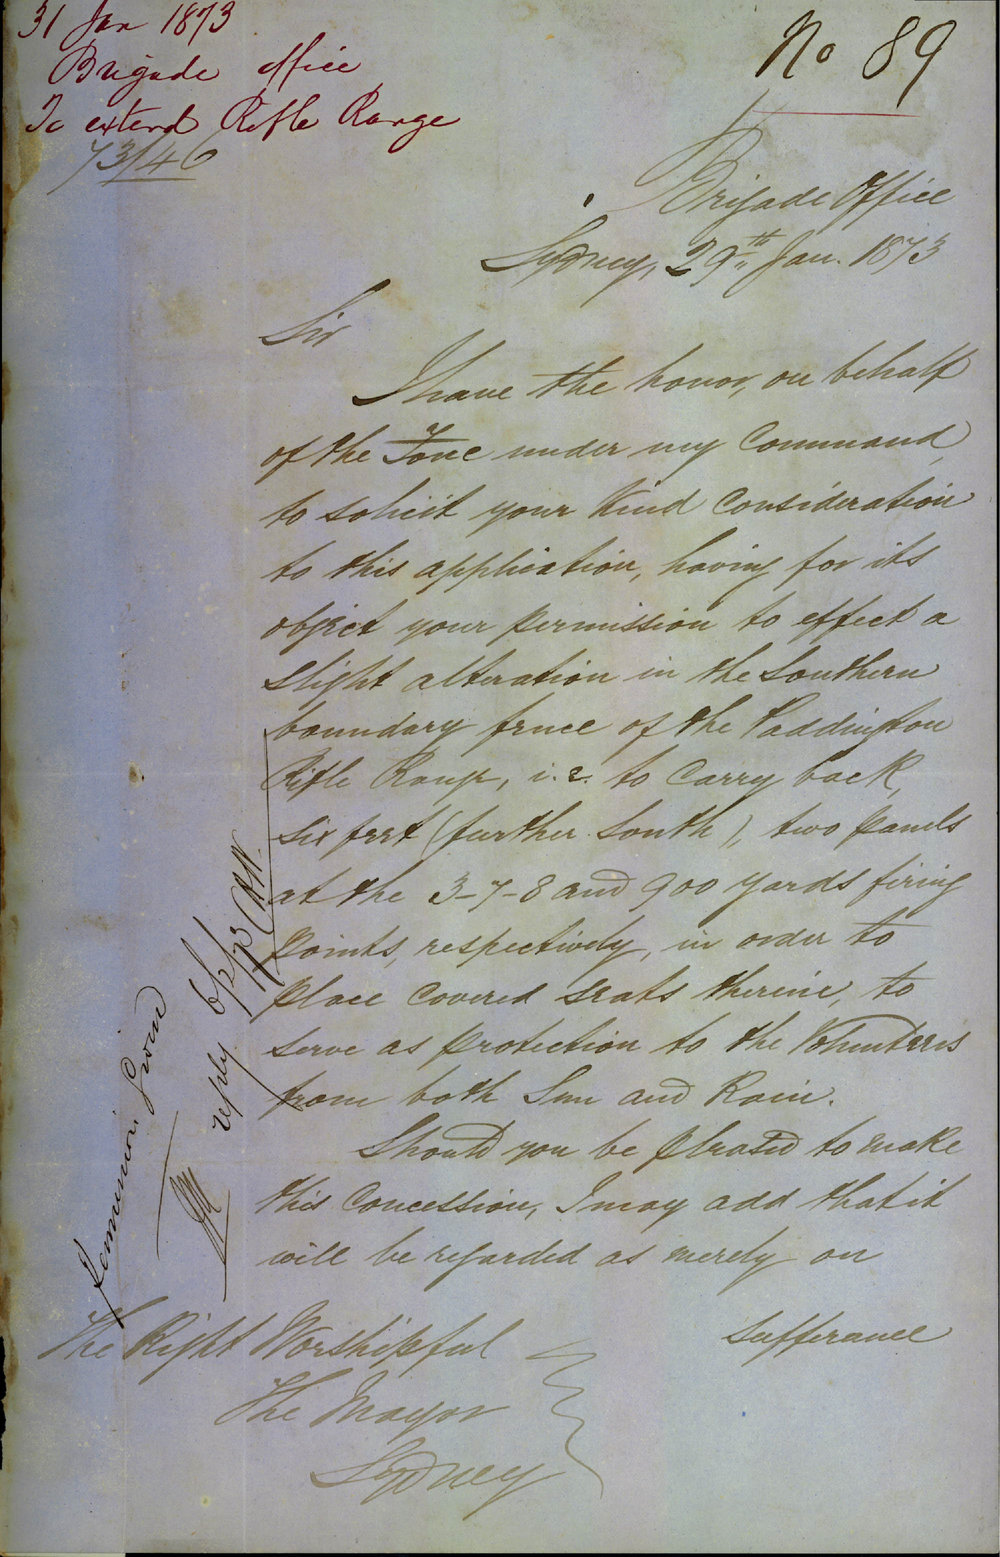 31 Jan 1873
Brigade office
To extend Rifle Range
73/146
No 89
Brigade Office
Sydney, 29th Jan. 1873
Sir
I have the honor, on behalf
of the Force under my Command,
to solicit your kind Consideration
to this application, having for its
object your permission to effect a
slight alteration in the Southern
boundary fence of the Paddington
Rifle Range, i.e. to Carry back,
six feet (further South), two panels
at the 3-7-8 and 900 yards firing
points, respectively, in order to
place Covered seats therein, to
serve as protection to the Volunteers
from both Sun and Rain.
Should you be pleased to make
this Concession, I may add that it
will be regarded as merely on
sufferance
The Right Worshipful
The Mayor
Sydney
Permission Given
reply